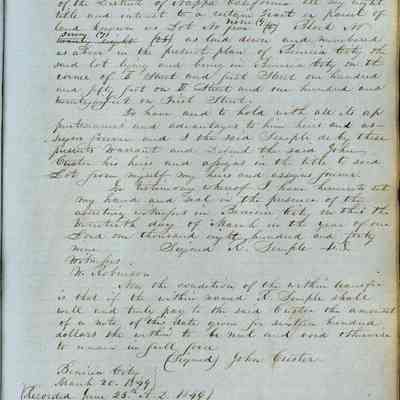 of the District of Nappa California all my right
title and interest to a certain tract or parcel of
land known as Lot No five nine (9) Block No
twenty eight seven (7) as laid down and numbered
as above in the present plan of Benicia City the
said lot lying and being in Benicia City on the
corner of D Street and first Street one hundred
and fifty feet on D Street and one hundred and
twenty feet on First Street.
To have and to hold with all its ap
purtenances and advantages to him heirs and as-
signs forever and I the said Semple do by these
presents Warrant and Defend the said John
Custer his heirs and assigns in the title to said
Lot from myself my heirs and assigns forever
In testimony whereof I have hereunto set
my hand and seal in the presence of the
attesting witness in Benicia City on this the
twentieth day of March in the year of one
Lord one thousand eight hundred and forty
nine Signed R. Semple L.S.
Witness
W. Robinson
Now the condition of the within transfer
is that if the within named R. Semple shall
well and truly pay to the said Custer the amount
of a note of this date given for sixteen hundred
dollars the within to be null and void otherwise
to remain in full force
(Signed) John Custer
Benicia City
March 20. 1849
(Recorded June 23rd A.D. 1849)